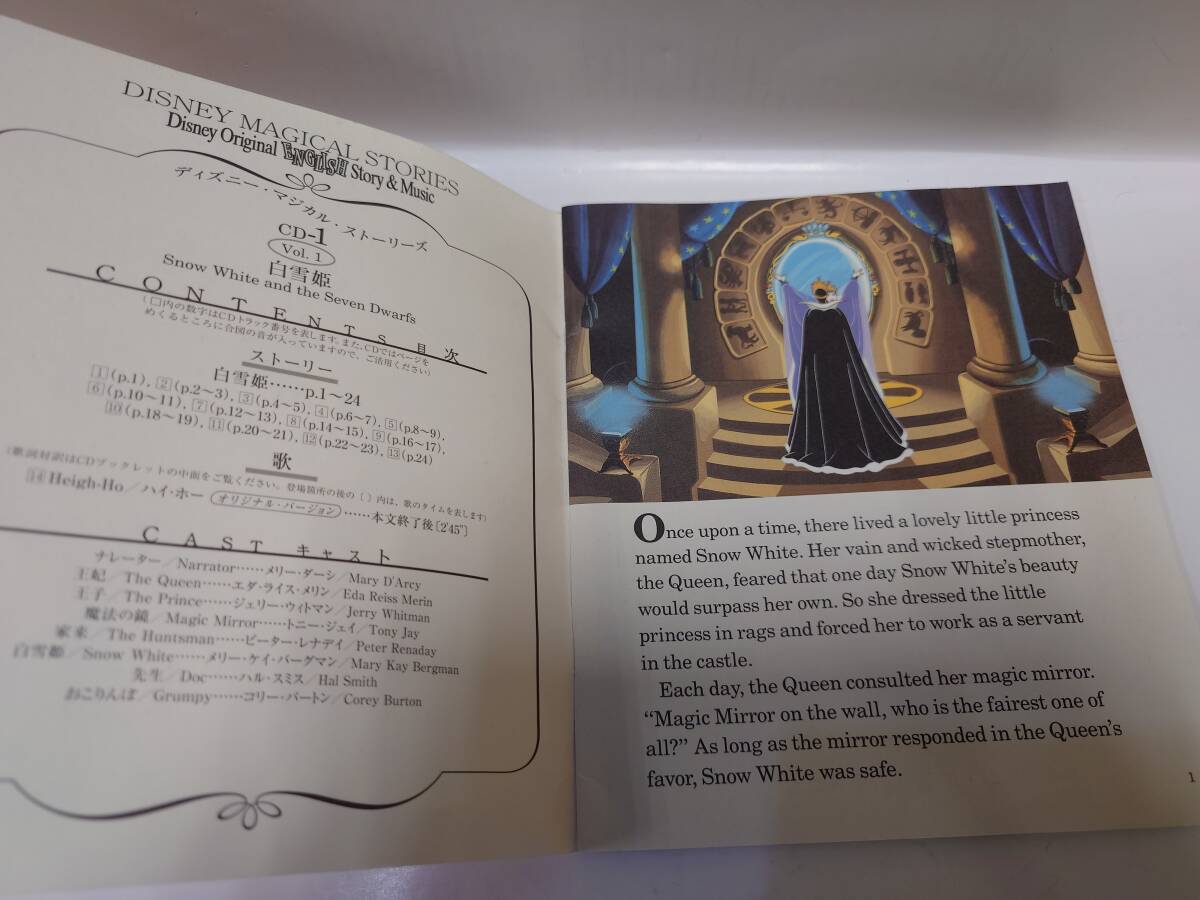 DISNEY MAGICAL STORIES
Disney Original ENGLISH Story & Music
ディズニー・マジカル・ストーリーズ
CD-1
Vol. 1
白雪姫
Snow White and the Seven Dwarfs
CONTENTS 目次
(□内の数字はCDトラック番号を表します。また、CDではページを
めくるところに合図の音が入っていますので、ご活用ください)
ストーリー
白雪姫……p.1〜24
1(p.1), 2(p.2〜3), 3(p.4〜5), 4(p.6〜7), 5(p.8〜9),
6(p.10〜11), 7(p.12〜13), 8(p.14〜15), 9(p.16〜17),
10(p.18〜19), 11(p.20〜21), 12(p.22〜23), 13(p.24)
歌
(歌詞対訳はCDブックレットの中面をご覧ください。登場箇所の後の〔 〕内は、歌のタイムを表します)
14 Heigh-Ho/ハイ・ホー(オリジナル・バージョン)……本文終了後〔2'45"〕
CAST キャスト
ナレーター/Narrator……メリー・ダーシ/Mary D'Arcy
王妃/The Queen……エダ・ライス・メリン/Eda Reiss Merin
王子/The Prince……ジェリー・ウィトマン/Jerry Whitman
魔法の鏡/Magic Mirror……トニー・ジェイ/Tony Jay
家来/The Huntsman……ピーター・レナデイ/Peter Renaday
白雪姫/Snow White……メリー・ケイ・バーグマン/Mary Kay Bergman
先生/Doc……ハル・スミス/Hal Smith
おこりんぼ/Grumpy……コリー・バートン/Corey Burton
Once upon a time, there lived a lovely little princess
named Snow White. Her vain and wicked stepmother,
the Queen, feared that one day Snow White's beauty
would surpass her own. So she dressed the little
princess in rags and forced her to work as a servant
in the castle.
Each day, the Queen consulted her magic mirror.
“Magic Mirror on the wall, who is the fairest one of
all?” As long as the mirror responded in the Queen's
favor, Snow White was safe.
1